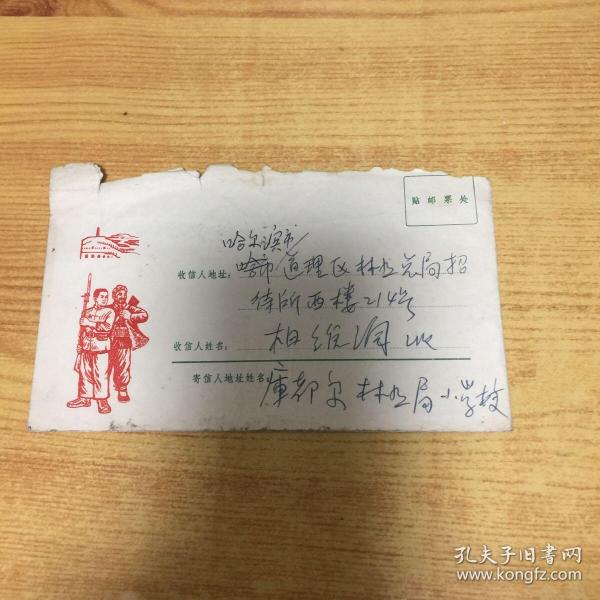 贴邮票处
哈尔滨市
收信人地址：哈市道理区林业总局招
待所西楼214号
收信人姓名：柏 收
寄信人地址姓名：库都尔林业局小学校
孔夫子旧书网
www.kongfz.com